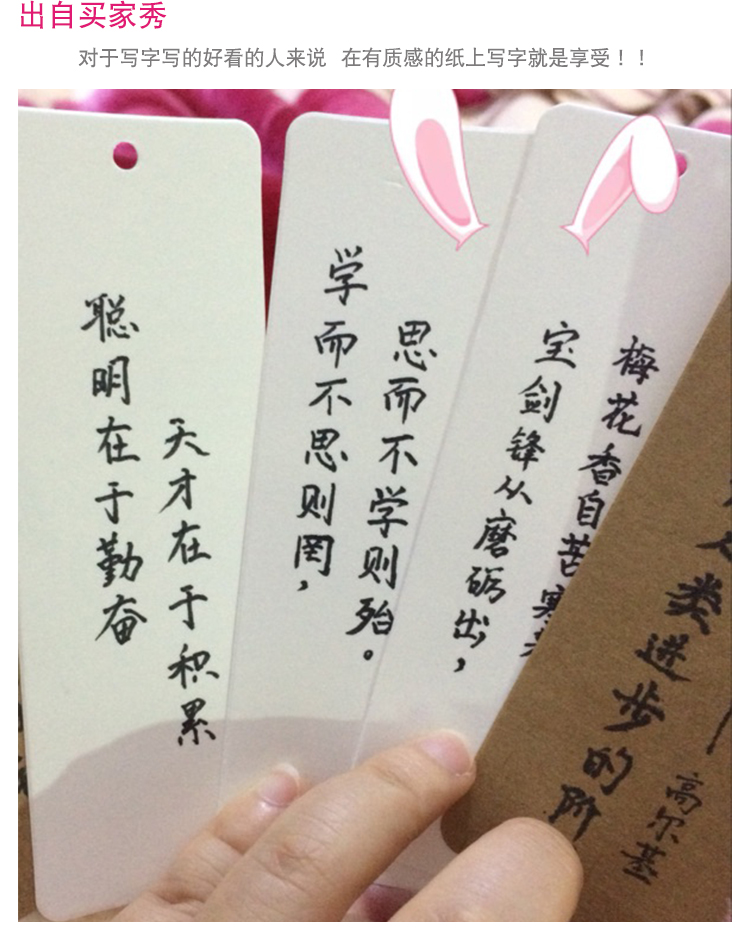 出自买家秀
对于写字写的好看的人来说 在有质感的纸上写字就是享受！！
聪明在于勤奋
天才在于积累
学而不思则罔，
思而不学则殆。
宝剑锋从磨砺出，
梅花香自苦寒
人类进步的阶
高尔基